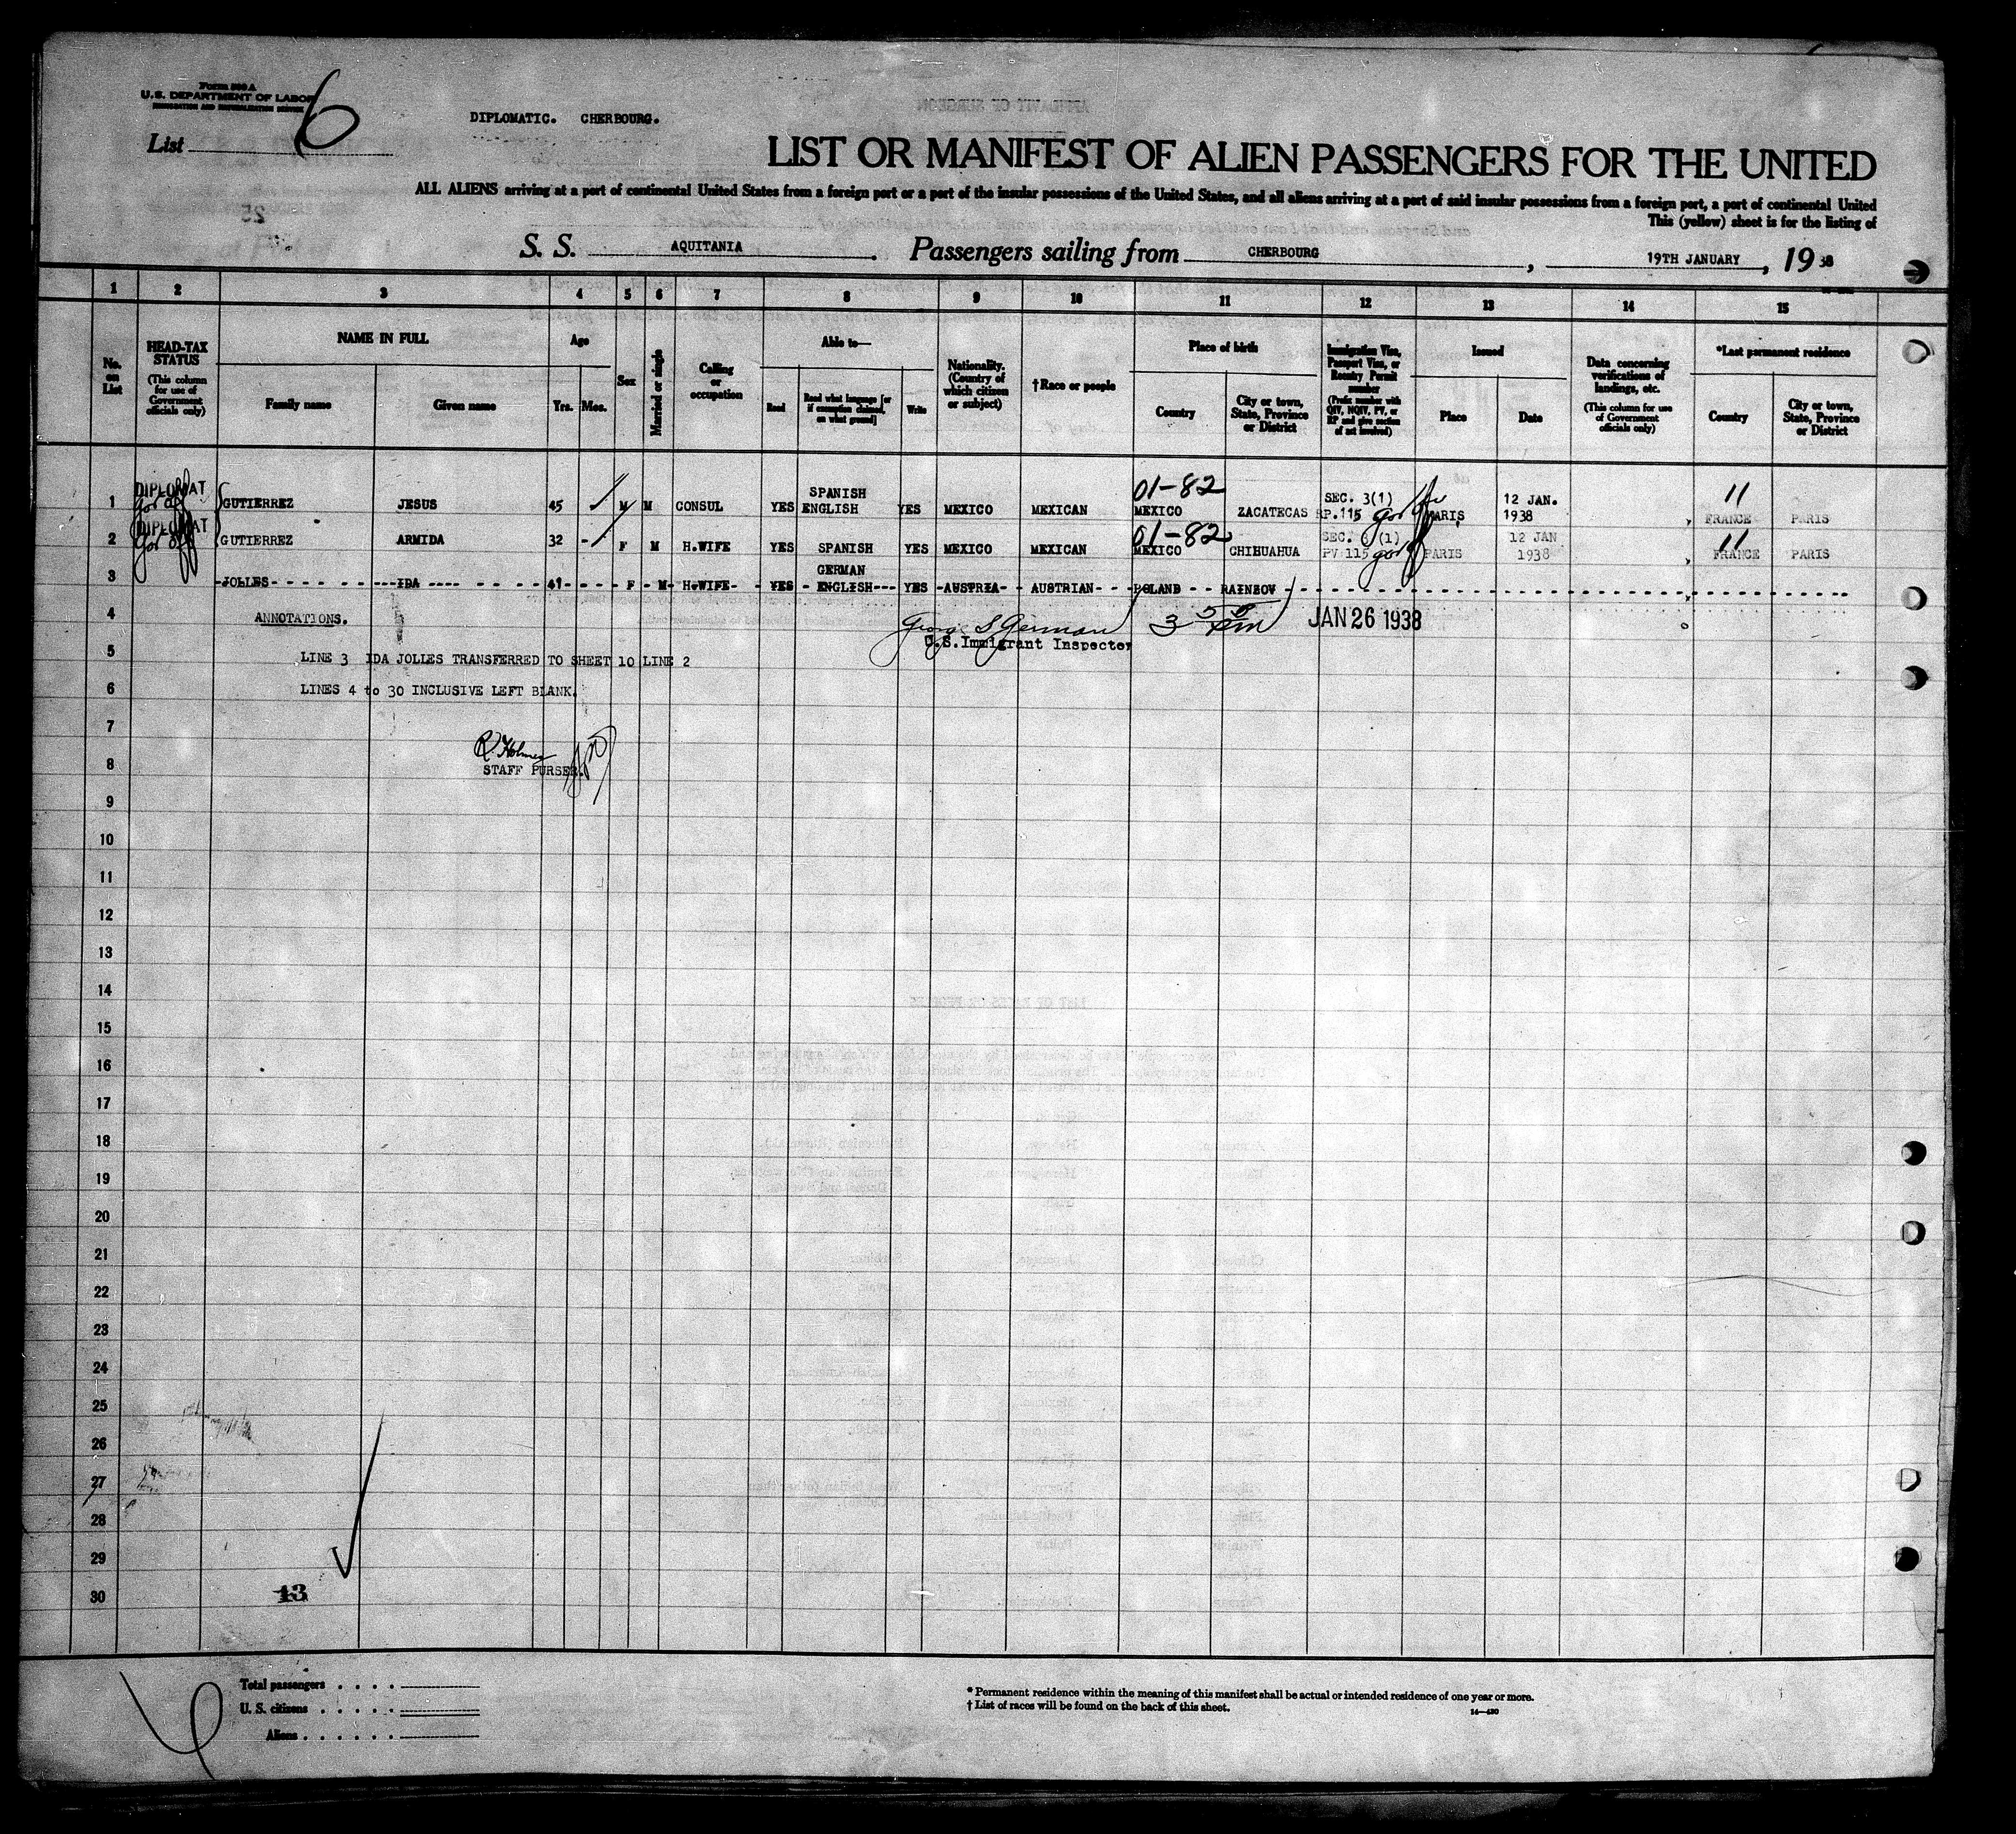 Form 500 A
U.S. DEPARTMENT OF LABOR
IMMIGRATION AND NATURALIZATION SERVICE
List 6
DIPLOMATIC. CHERBOURG.
LIST OR MANIFEST OF ALIEN PASSENGERS FOR THE UNITED
ALL ALIENS arriving at a port of continental United States from a foreign port or a port of the insular possessions of the United States, and all aliens arriving at a port of said insular possessions from a foreign port, a port of continental United
This (yellow) sheet is for the listing of
S. S. AQUITANIA. Passengers sailing from CHERBOURG, 19TH JANUARY, 19 38
1 2 3 4 5 6 7 8 9 10 11 12 13 14 15
No. on List
HEAD-TAX STATUS
(This column for use of Government officials only)
NAME IN FULL
Family name Given name
Age
Yrs. Mos.
Sex
Married or single
Calling or occupation
Able to—
Read
Read what language [or if exemption claimed, on what ground]
Write
Nationality. (Country of which citizen or subject)
† Race or people
Place of birth
Country
City or town, State, Province or District
Immigration Visa, Passport Visa, or Reentry Permit number
(Prefix number with QIV, NQIV, PV, or RP and give section of act involved)
Issued
Place Date
Data concerning verifications of landings, etc.
(This column for use of Government officials only)
*Last permanent residence
Country
City or town, State, Province or District
1 DIPLOMAT GUTIERREZ JESUS 45 M M CONSUL YES SPANISH ENGLISH YES MEXICO MEXICAN 01-82 MEXICO ZACATECAS SEC. 3(1) P.115 PARIS 12 JAN. 1938 11 FRANCE PARIS
2 DIPLOMAT GUTIERREZ ARMIDA 32 - F M H.WIFE YES SPANISH YES MEXICO MEXICAN 01-82 MEXICO CHIHUAHUA SEC. 3(1) PV 115 PARIS 12 JAN 1938 11 FRANCE PARIS
3 JOLLES IDA 41 F M H.WIFE YES GERMAN ENGLISH YES AUSTRIA AUSTRIAN POLAND RAINBOV
4 ANNOTATIONS. George S German 3 55 PM JAN 26 1938
U.S. Immigrant Inspector
5 LINE 3 IDA JOLLES TRANSFERRED TO SHEET 10 LINE 2
6 LINES 4 to 30 INCLUSIVE LEFT BLANK.
7
R. Holmes
8 STAFF PURSER.
9
10
11
12
13
14
15
16
17
18
19
20
21
22
23
24
25
26
27
28
29
30
13
Total passengers
U. S. citizens
Aliens
* Permanent residence within the meaning of this manifest shall be actual or intended residence of one year or more.
† List of races will be found on the back of this sheet.
14—420